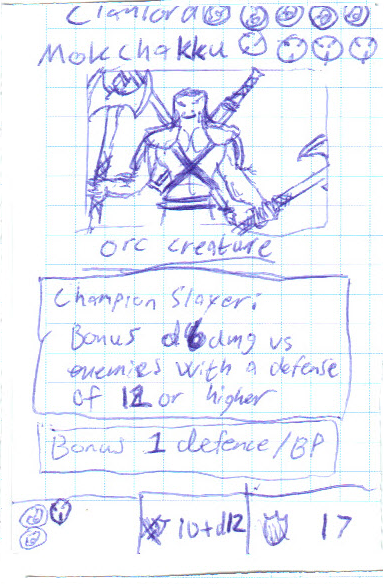 Clanlord
Mokchakku
orc creature
Champion Slayer:
Bonus d6 dmg vs
enemies with a defense
of 12 or higher
Bonus 1 defence/BP
10+d12 17